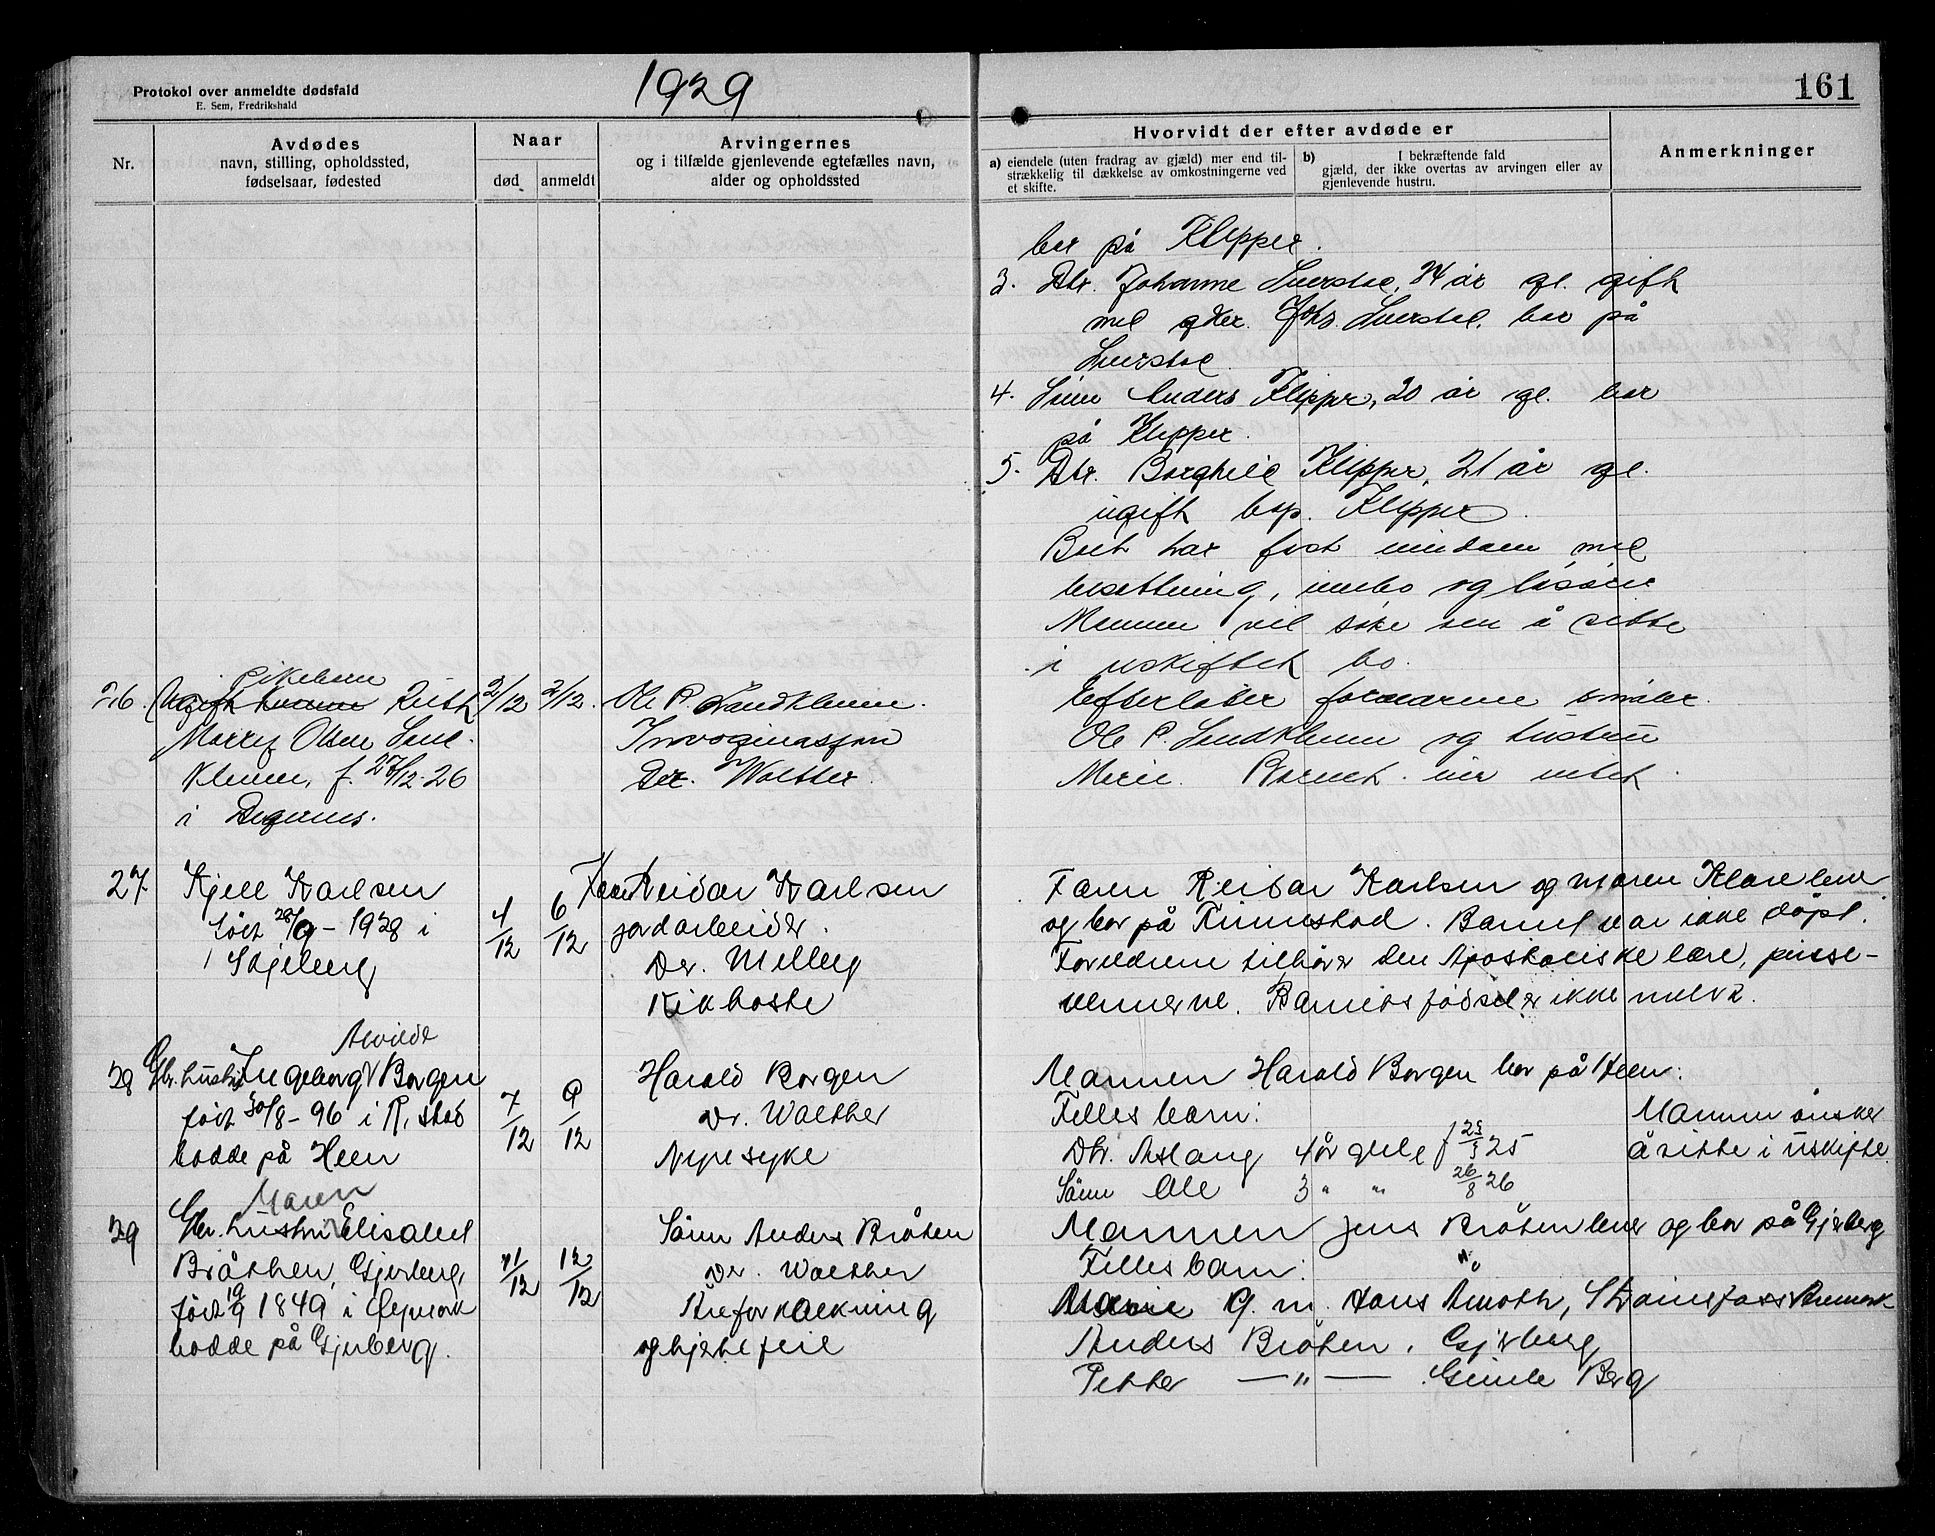 Protokol over anmeldte dødsfald
E. Sem, Fredrikshald
1929
161
Nr.
Avdødes
navn, stilling, opholdssted,
fødselsaar, fødested
Naar
død
anmeldt
Arvingernes
og i tilfælde gjenlevende egtefælles navn,
alder og opholdssted
Hvorvidt der efter avdøde er
a) eiendele (uten fradrag av gjæld) mer end til-
strækkelig til dækkelse av omkostningerne ved
et skifte.
b) I bekræftende fald
gjæld, der ikke overtas av arvingen eller av
gjenlevende hustru.
Anmerkninger
bor på Klipper.
3. Dtr. Johanne 24 år gl. gift
med bor på
4. Sönn Anders Klipper, 20 år gl. bor
på Klipper.
5. Dtr. Borghild Klipper, 21 år gl.
ugift bop. Klipper.
Boet har fast eiendom med
besettning, innbo og lösöre
Mannen vil söke om å sitte
i uskiftet bo.
26. Pikebarn
Ugift kvinne Ruth
2/12 2/12.
Olsen Sand-
klenen, f. 27/12-26
i Degernes.
Ole P. Sandklenen.
Invaginasjon
Dr. Walther.
Efterlater foreldrene
Ole P. Sandklenen og hustru
Marie. Barnet eier intet.
27. Kjell Karlsen
født 28/9-1928 i
Skjeberg
4/12 6/12
Far Reidar Karlsen
jordarbeider.
Dr. Melleg
Kikhoste
Faren Reidar Karlsen og moren Klare lever
og bor på Finnestad. Barnet var ikke döpt.
Foreldrene tilhörer den Apostoliske lære, pinse-
vennerne. Barnets födsel er ikke meldt.
28 Gbr. hustru Ingeborg Alvilde Borgen
født 30/8-96 i R.stad
bodde på Heen
7/12 9/12
Harald Borgen
Dr. Walther
Nyresyke
Mannen Harald Borgen bor på Heen.
Felles barn:
Dtr. Aslaug 4 år gule f 25/3 25
Sönn Ole 3 " " 26/8 26
Mannen önsker
å sitte i uskifte
29 Gbr. hustru Maren Elisabet
Bråthen, Gjerberg,
født 19/9 1849 i Öymark
bodde på Gjerberg.
11/12 12/12
Sönn Anders Bråten
Dr. Walther
Åreforkalkning
og hjertefeil
Mannen Jens Bråten lever og bor på Gjerberg
Felles barn:
Marie g. m. Hans
Anders Bråten, Gjerberg
Petter —"— Gimle Berg